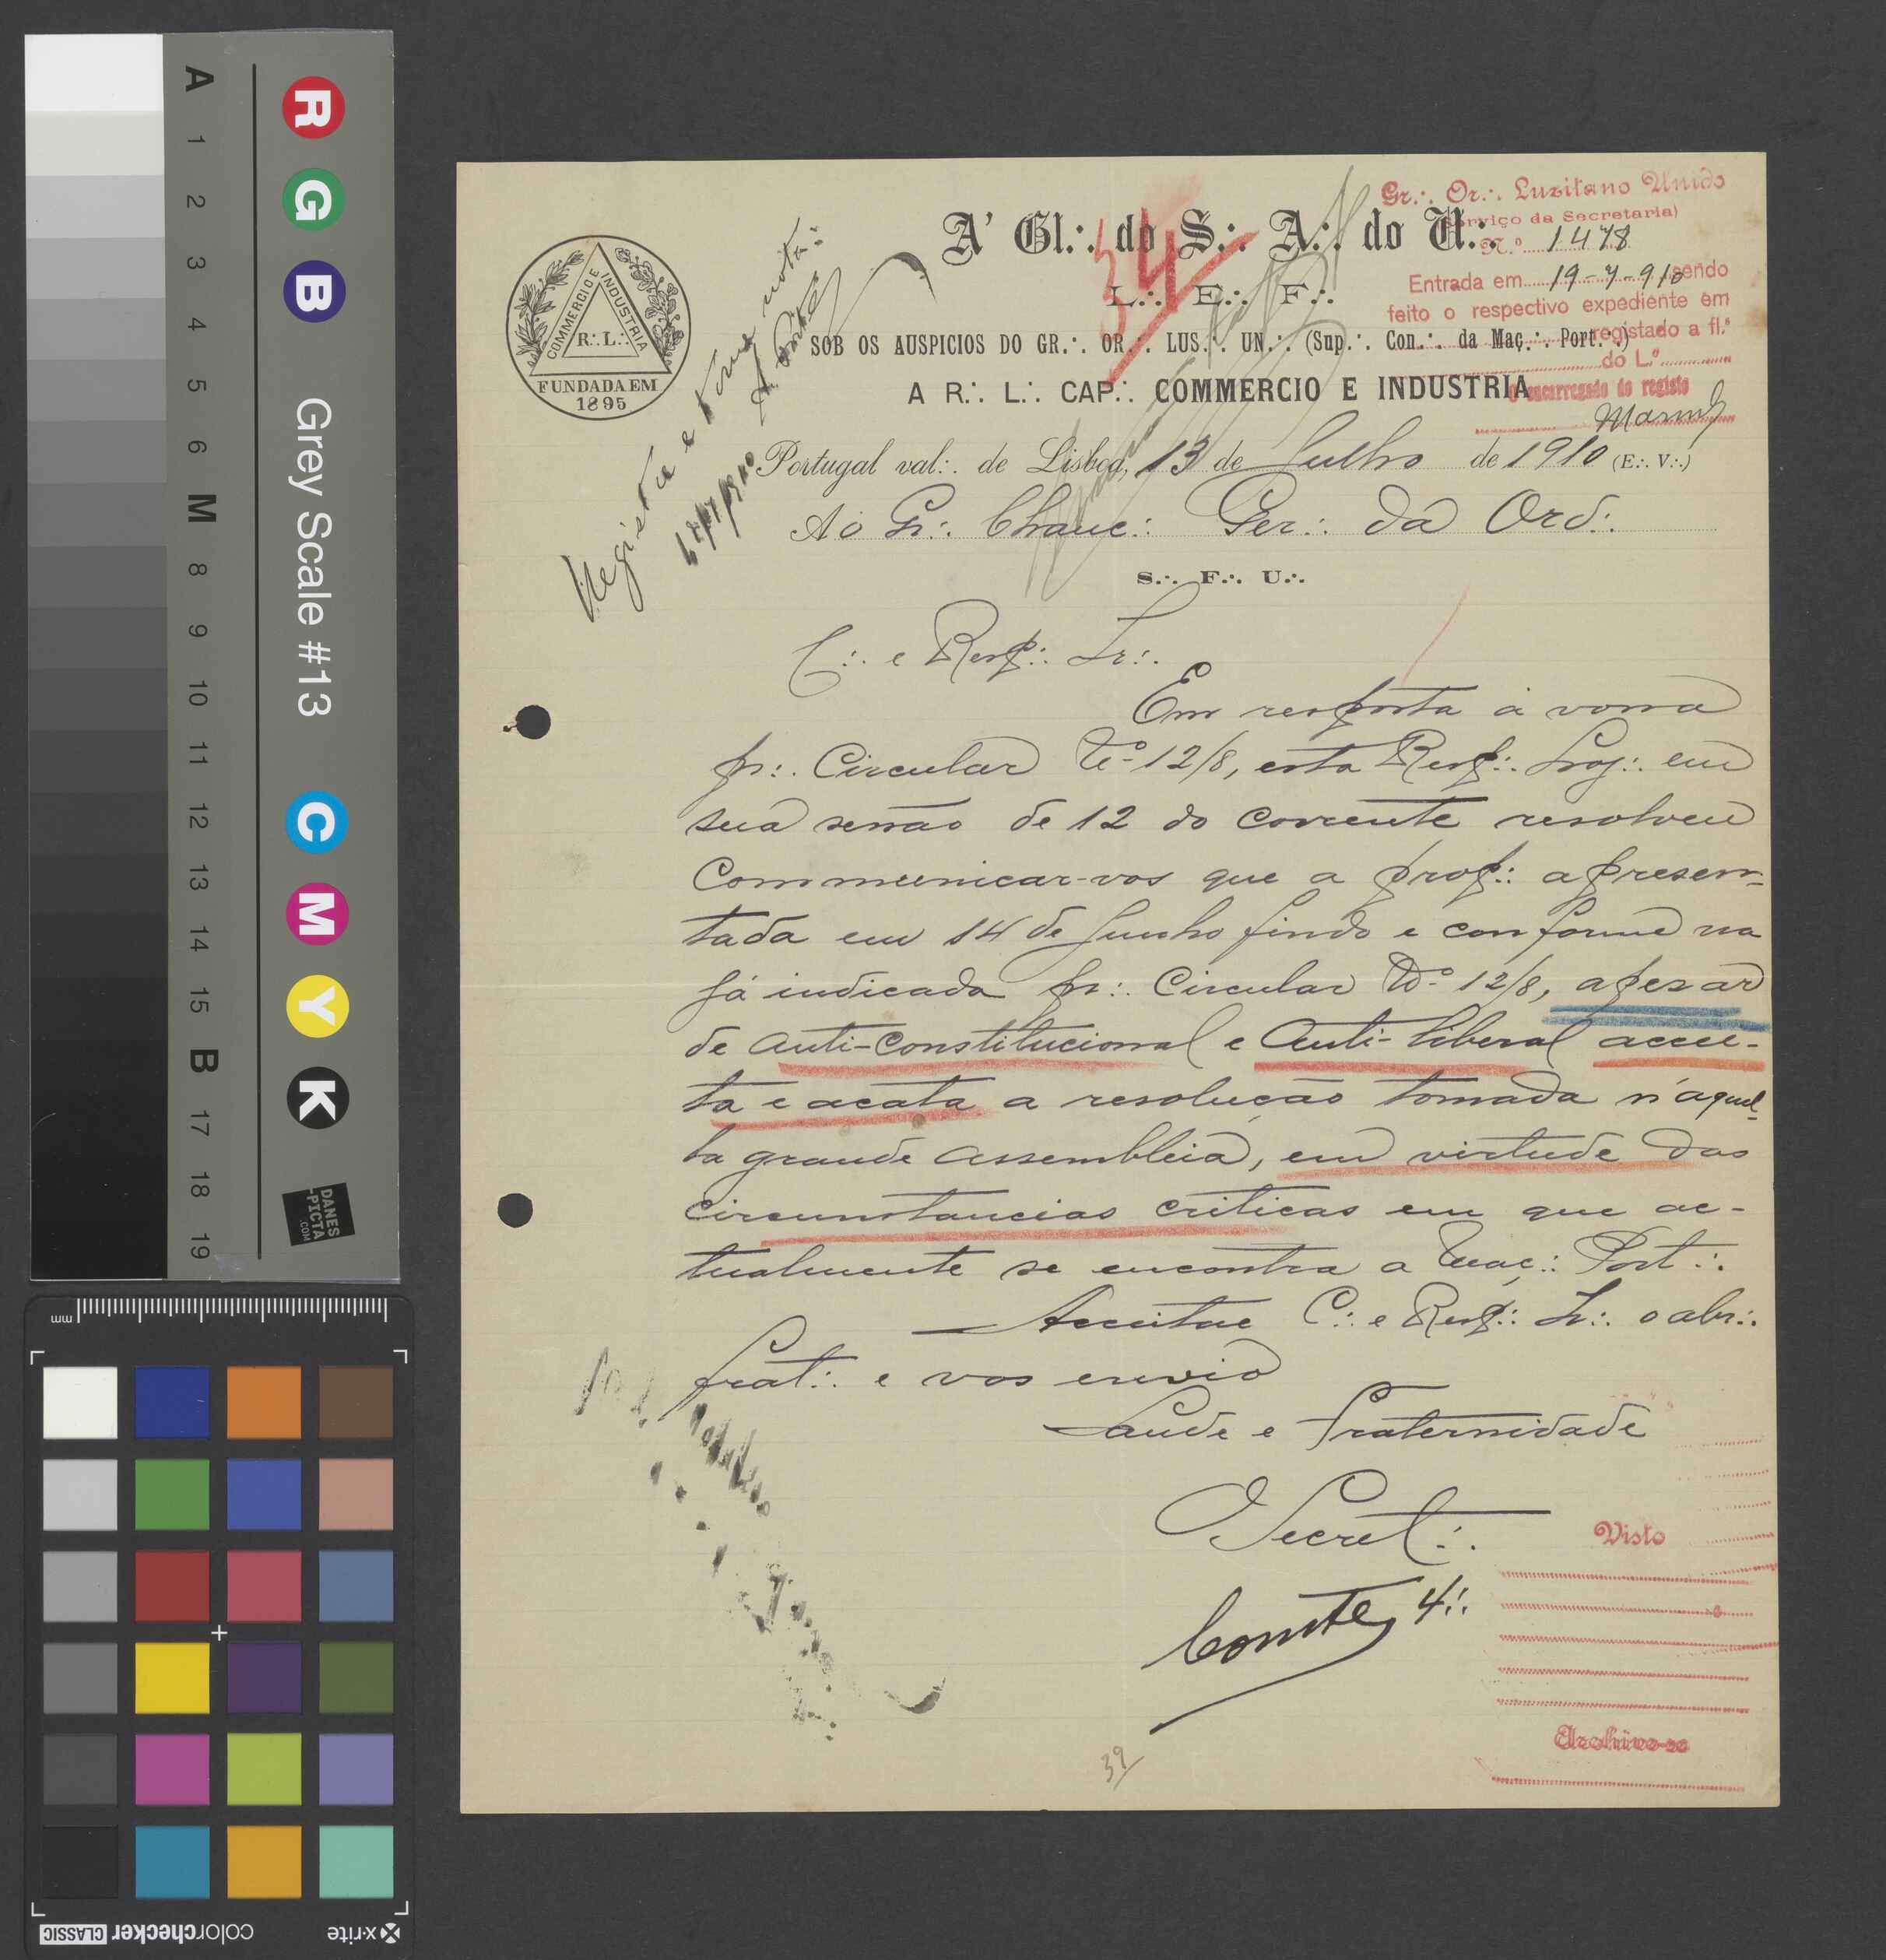 A' Gl.·. do S.·. A.·. do U.·.
L.·. E.·. F.·.
SOB OS AUSPICIOS DO GR.·. OR.·. LUS.·. UN.·. (Sup.·. Con.·. da Maç.·. Port.·.)
A R.·. L.·. CAP.·. COMMERCIO E INDUSTRIA
COMMERCIO E INDUSTRIA
R.·. L.·.
FUNDADA EM
1895
Gr.·. Or.·. Luzitano Unido
(Serviço da Secretaria)
N.º 1478
Entrada em 19-7-910 sendo
feito o respectivo expediente em
registado a fl.ª
do L.º
O encarregado do registo
34
Registe e tome nota:
Portugal val.·. de Lisboa, 13 de Julho de 1910 (E.·. V.·.)
Ao Gr.·. Chanc.·. Ger.·. da Ord.·.
S.·. F.·. U.·.
C.·. e Resp.·. Ir.·.
Em resposta á vossa
pr.·. Circular Nº 12/8, esta Resp.·. Loj.·. em
sua sessão de 12 do corrente resolveu
Communicar-vos que a prop.·. apresen-
tada em 14 de Junho findo e conforme na
já indicada pr.·. Circular Nº 12/8, apesar
de anti-constitucional e anti-liberal accei-
ta e acata a resolução tomada n'aquel-
la grande assembleia, em virtude das
circunstancias criticas em que ac-
tualmente se encontra a Maç.·. Port.·.
Acceitae C.·. e Resp.·. Ir.·. o abr.·.
frat.·. e vos envio
Saude e Fraternidade
O Secret.·.
Comte 4.·.
Visto
Archive-se
39
A
1
2
3
4
5
6
M
8
9
10
11
12
13
14
15
B
17
18
19
R G B
Grey Scale #13
C M Y K
DANES
-PICTA
.COM
mm
x-rite
colorchecker CLASSIC